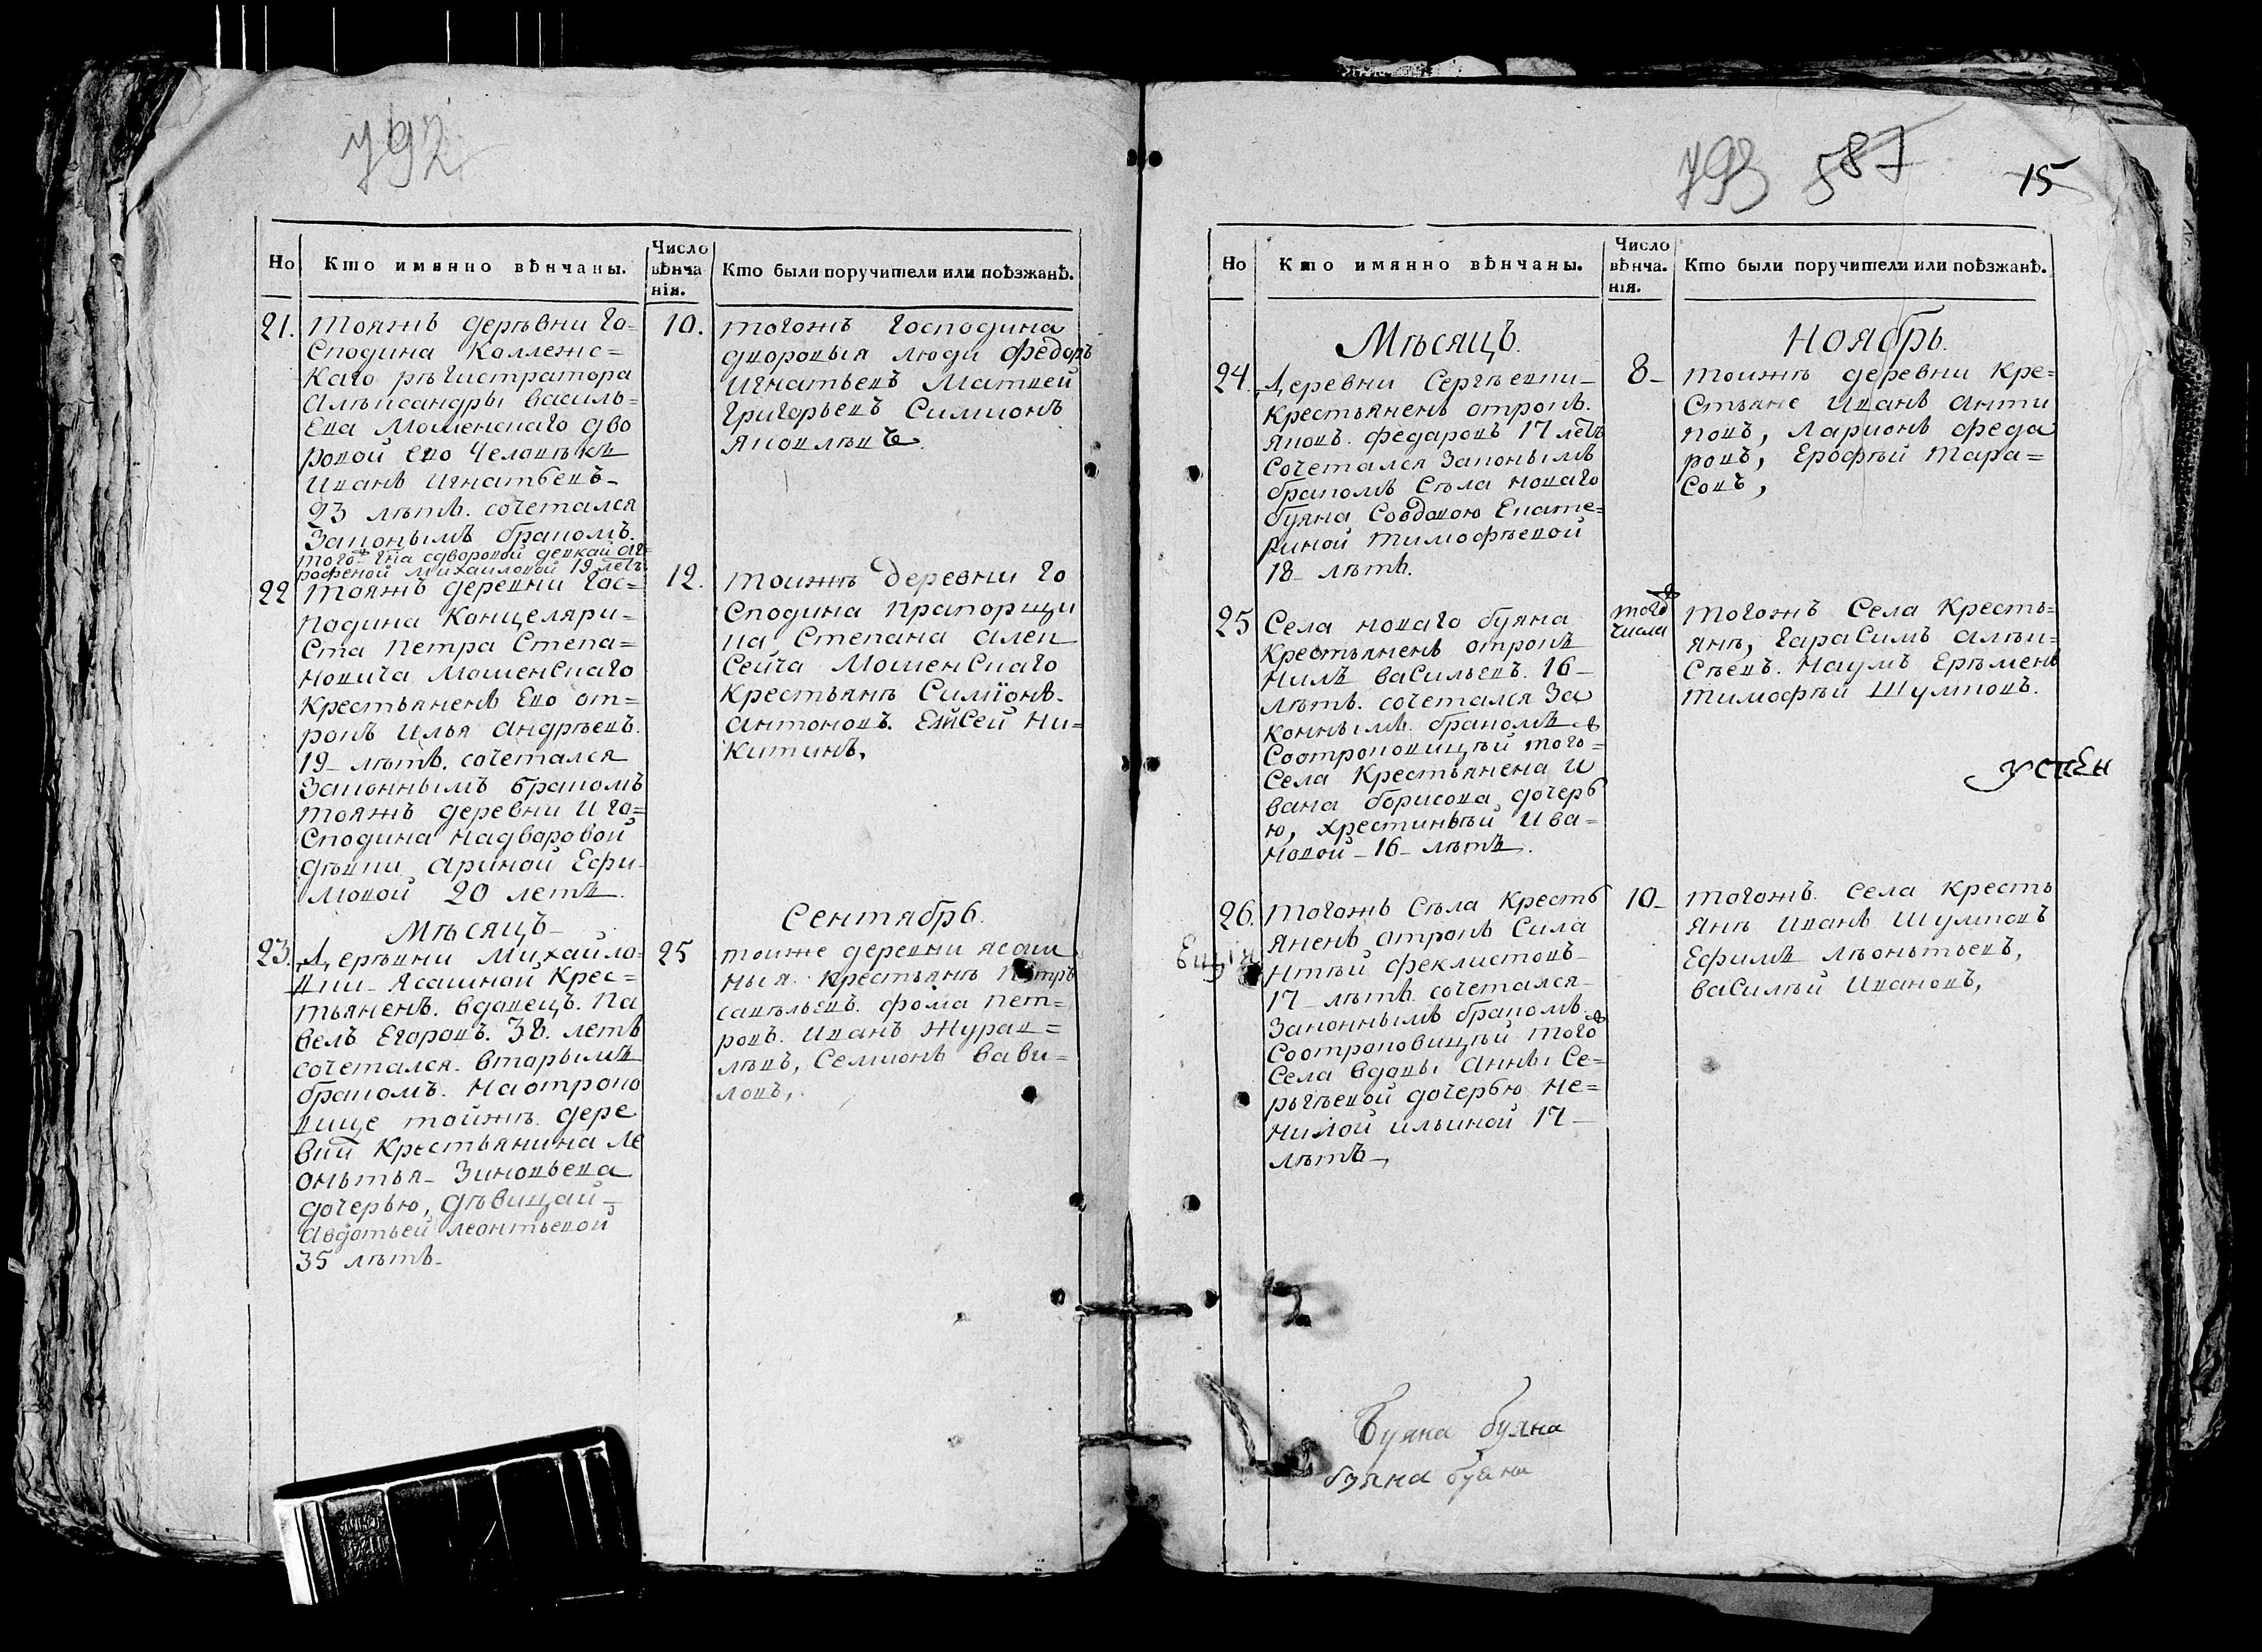 792
Но
Кто имянно вѣнчаны.
Число вѣнча нія.
Кто были поручители или поѣзжанѣ.
21.
Тояжъ дерѣвни го=
сподина Коллежс=
каго рѣгистратора
Алѣксандры василь=
ева Мошенскаго дво
ровой ево человѣкъ
Иванъ Игнатьевъ
23 лѣтъ. сочетался
Законымъ бракомъ.
того ж гна сдворовой девкай аг=
рофеной михаиловой 19 летъ
10.
тогожъ господина
дворовыя люди федоръ
Игнатьевъ Матвей
Григорьевъ Симионъ
Яковлѣвъ.
22
Тояжъ деревни гос=
подина Канцеляри=
ста Петра Степа=
новича Мошенскаго
крестьяненъ Ево от=
рокъ Илья Андрѣевъ.
19 лѣтъ. сочетался
Законнымъ бракомъ
тояжъ деревни и го=
сподина надворовой
дѣвки Ариной Ефи=
мовой 20 летъ.
12.
тоижъ деревни го
сподина прапорщи
ка Степана алек
сеича Мошенскаго
крестьянъ Симіонъ.
антоновъ. Елисей ни=
китинъ,
Мѣсяцъ
Сентябрь.
23.
Дерѣвни Михайло=
вки Ясашной крес=
тьяненъ. вдовецъ. па
велъ Егаровъ. 38. летъ
сочетался. вторымъ
бракомъ. на отроко
вице тойжъ дере
вни крестьянина ле
онътья Зиновьева
дочерью, дѣвицай
авдотьей леонтьевой
35 лѣтъ.
25
тоиже деревни ясаш
ныя крестьянъ петръ
савѣльевъ. фома пет=
ровъ. Иванъ Журав=
лѣвъ, Семионъ вави=
ловъ,
793 587
15
Но
Кто имянно вѣнчаны.
Число вѣнча. нія.
Кто были поручители или поѣзжанѣ.
Мѣсяцъ.
Ноябрь.
24.
Деревни Сергѣевки
крестьяненъ отрокъ.
яковъ. федаровъ 17 летъ
сочетался Законымъ
бракомъ Сѣла новаго
буяна Совдовою Екате=
риной Тимофѣевой
18 лѣтъ.
8
тоижъ деревни кре=
стьяне Иванъ анти
повъ, Ларионъ феда
ровъ, Ерофѣй Тара=
совъ,
25
Села новаго буяна
крестьяненъ отрокъ
Нилъ васильевъ. 16
лѣтъ. сочетался За
коннымъ бракомъ
Соотроковицѣй того ж=
села крестьянена И
вана борисова дочерь
ю, хрестинѣй Ива=
новой 16 лѣтъ.
того ж числа
тогожъ Села кресть=
янъ, гарасимъ алѣк=
сѣевъ. наумъ Ерѣменъ
тимофѣй Шумковъ.
успен
26.
тогожъ Сѣла кресть
яненъ отрокъ Сила
нтѣй феклистовъ
17 лѣтъ. сочетался
Законнымъ бракомъ.
Соотроковицѣй того ж
села вдовы Анны Се=
ргѣевой дочерью не=
нилой ильиной 17
лѣтъ
10
тогожъ села кресть
янъ Иванъ Шумковъ
Ефимъ лѣонътьевъ,
василѣй Ивановъ,
Буяна буяна
буяна буяна